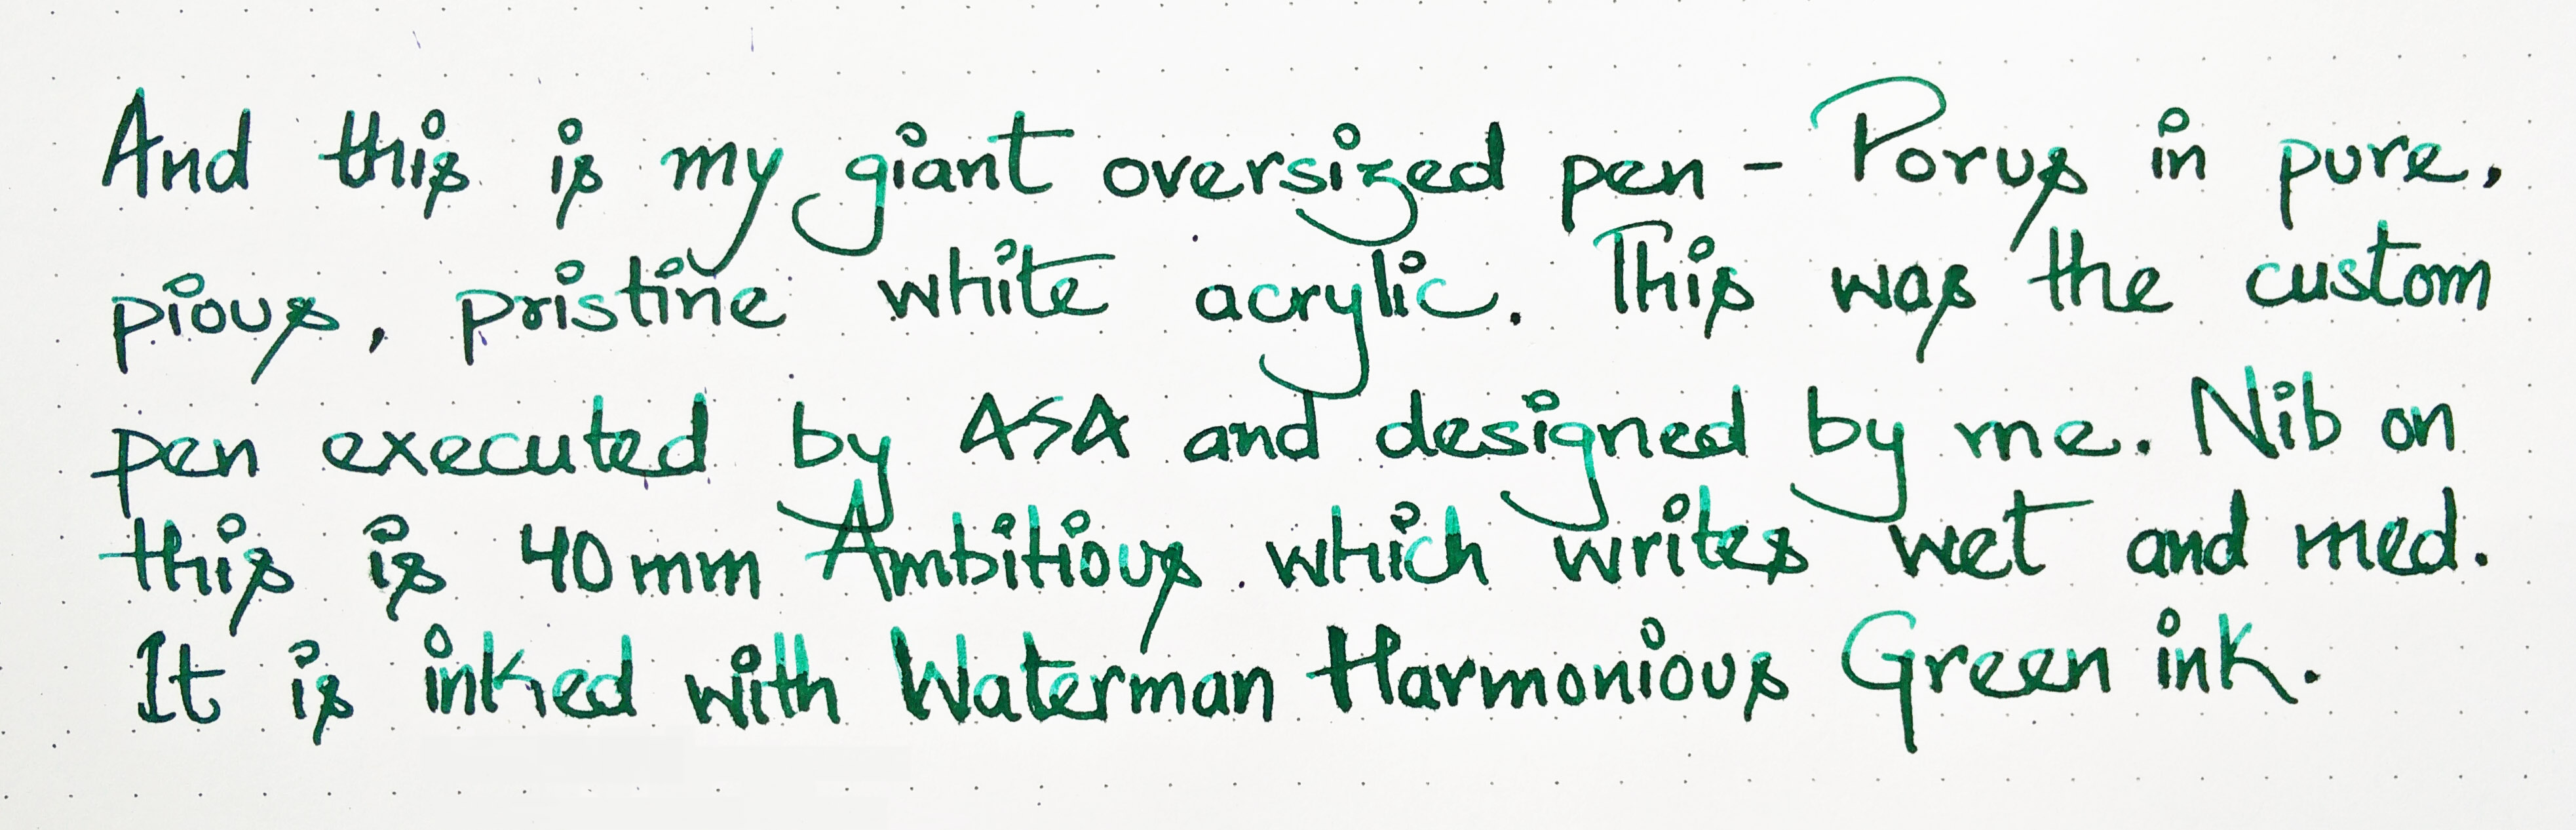 And this is my giant oversized pen - Porus in pure,
pious, pristine white acrylic. This was the custom
pen executed by ASA and designed by me. Nib on
this is 40mm Ambitious which writes wet and med.
It is inked with Waterman Harmonious Green ink.